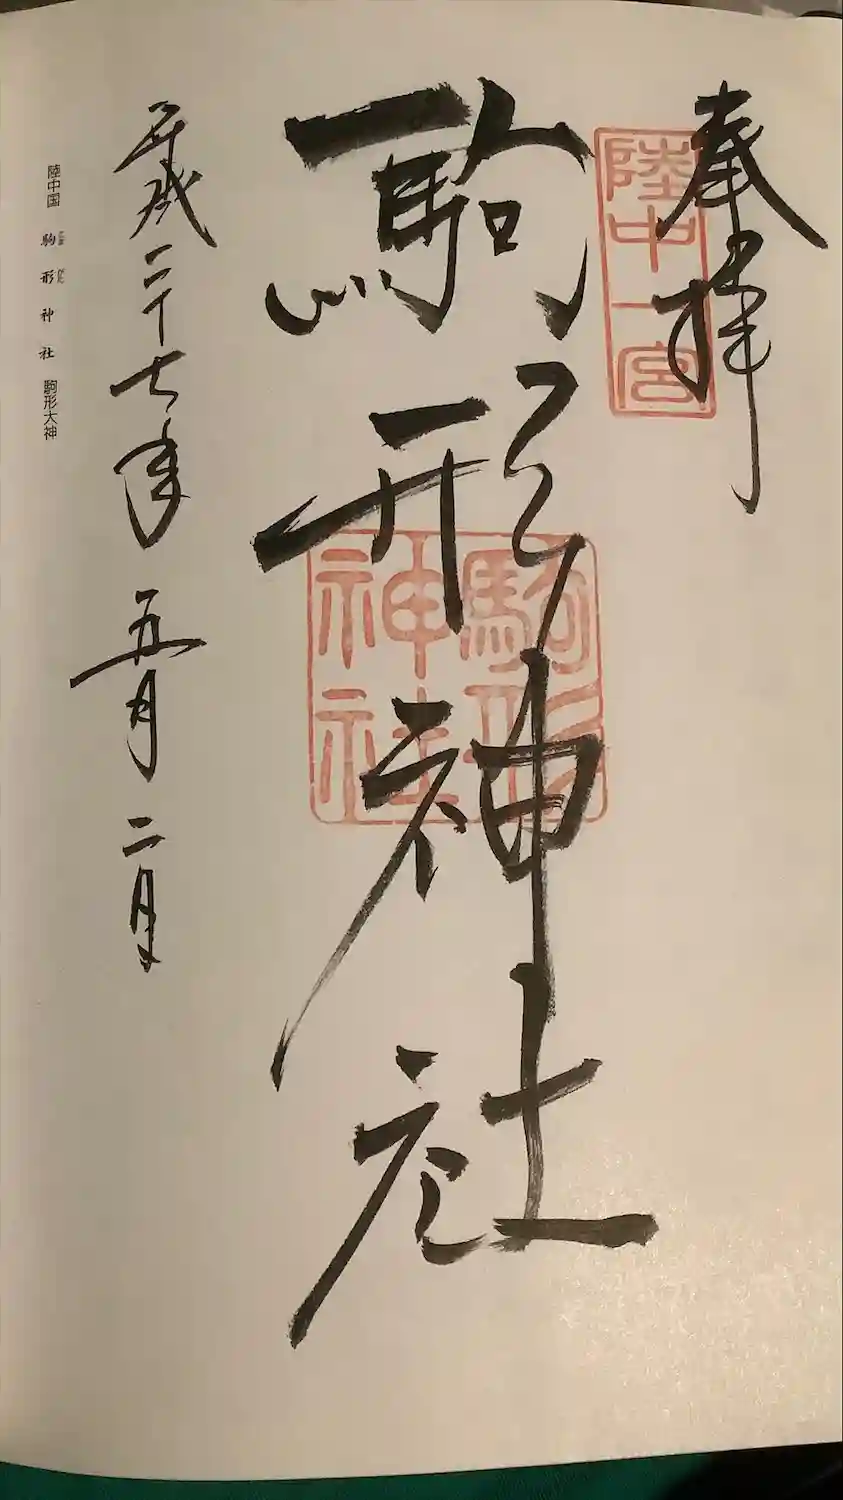 奉拝
陸中一宮
駒形神社
駒形神社
平成二十七年 五月 二日
陸中国 駒形神社 駒形大神